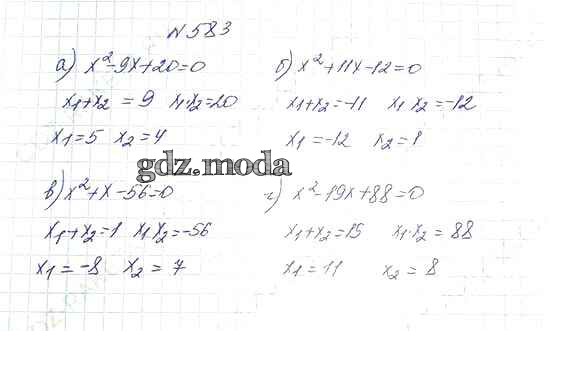 № 583
а) x²-9x+20=0
x₁+x₂ = 9 x₁·x₂=20
x₁=5 x₂=4
б) x²+11x-12=0
x₁+x₂=-11 x₁ x₂=-12
x₁=-12 x₂=1
gdz.moda
в) x²+x-56=0
x₁+x₂=1 x₁x₂=-56
x₁=-8 x₂=7
г) x²-19x+88=0
x₁+x₂=15 x₁·x₂=88
x₁=11 x₂=8